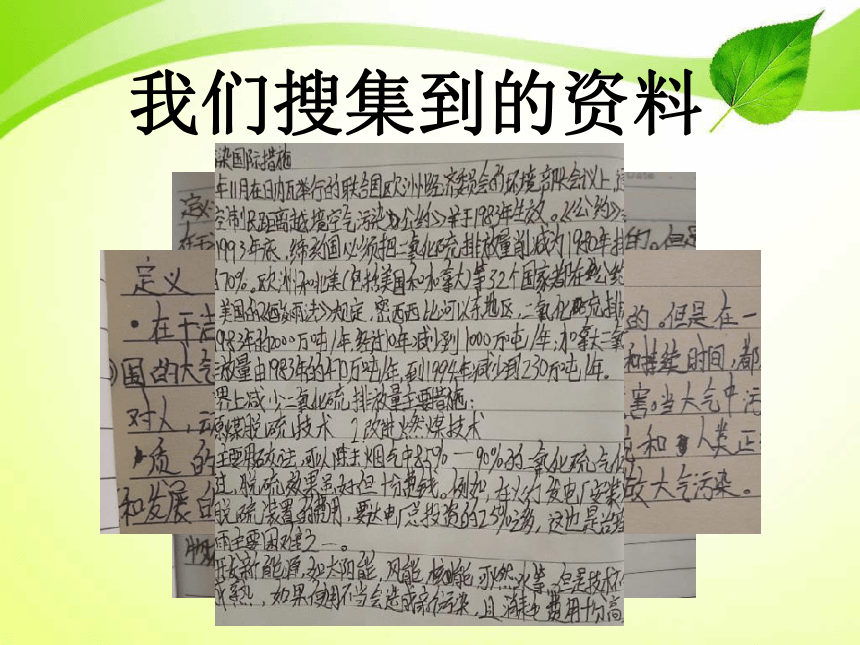 我们搜集到的资料
染国际措施
年11月在日内瓦举行的联合国欧洲经济委员会的环境部长会议上
空制长距离越境空气污染公约》并于1983年生效。《公约》
1993年底,缔约国必须把二氧化硫排放量削减为1980年排
70%。欧洲和北美(包括美国和加拿大)等32个国家都在公约
美国的《酸雨法》规定,密西西比河以东地区,二氧化硫排
983年的2000万吨/年,经过10年减少到1000万吨/年,加拿大二氧
放量由1983年的470万吨/年,到1994年减少到230万吨/年。
界上减少二氧化硫排放量主要措施:
原煤脱硫技术 2.改进燃煤技术
主要用石灰法,可以除去烟气中85%—90%的二氧化硫气体
过,脱硫效果虽好但十分费钱。例如,在火力发电厂安装
脱硫装置的费用,要达电厂总投资的25%之多,这也是治
雨主要困难之一。
开发新能源,如太阳能,风能,核能,可燃冰等,但是技术不
成熟,如果使用不当会造成新污染,且消耗费用十分高
定义
·在干
围的大气
对人,
质的
和发展
的。但是在一
和持续时间,都
害。当大气中污
和人类正
故大气污染。